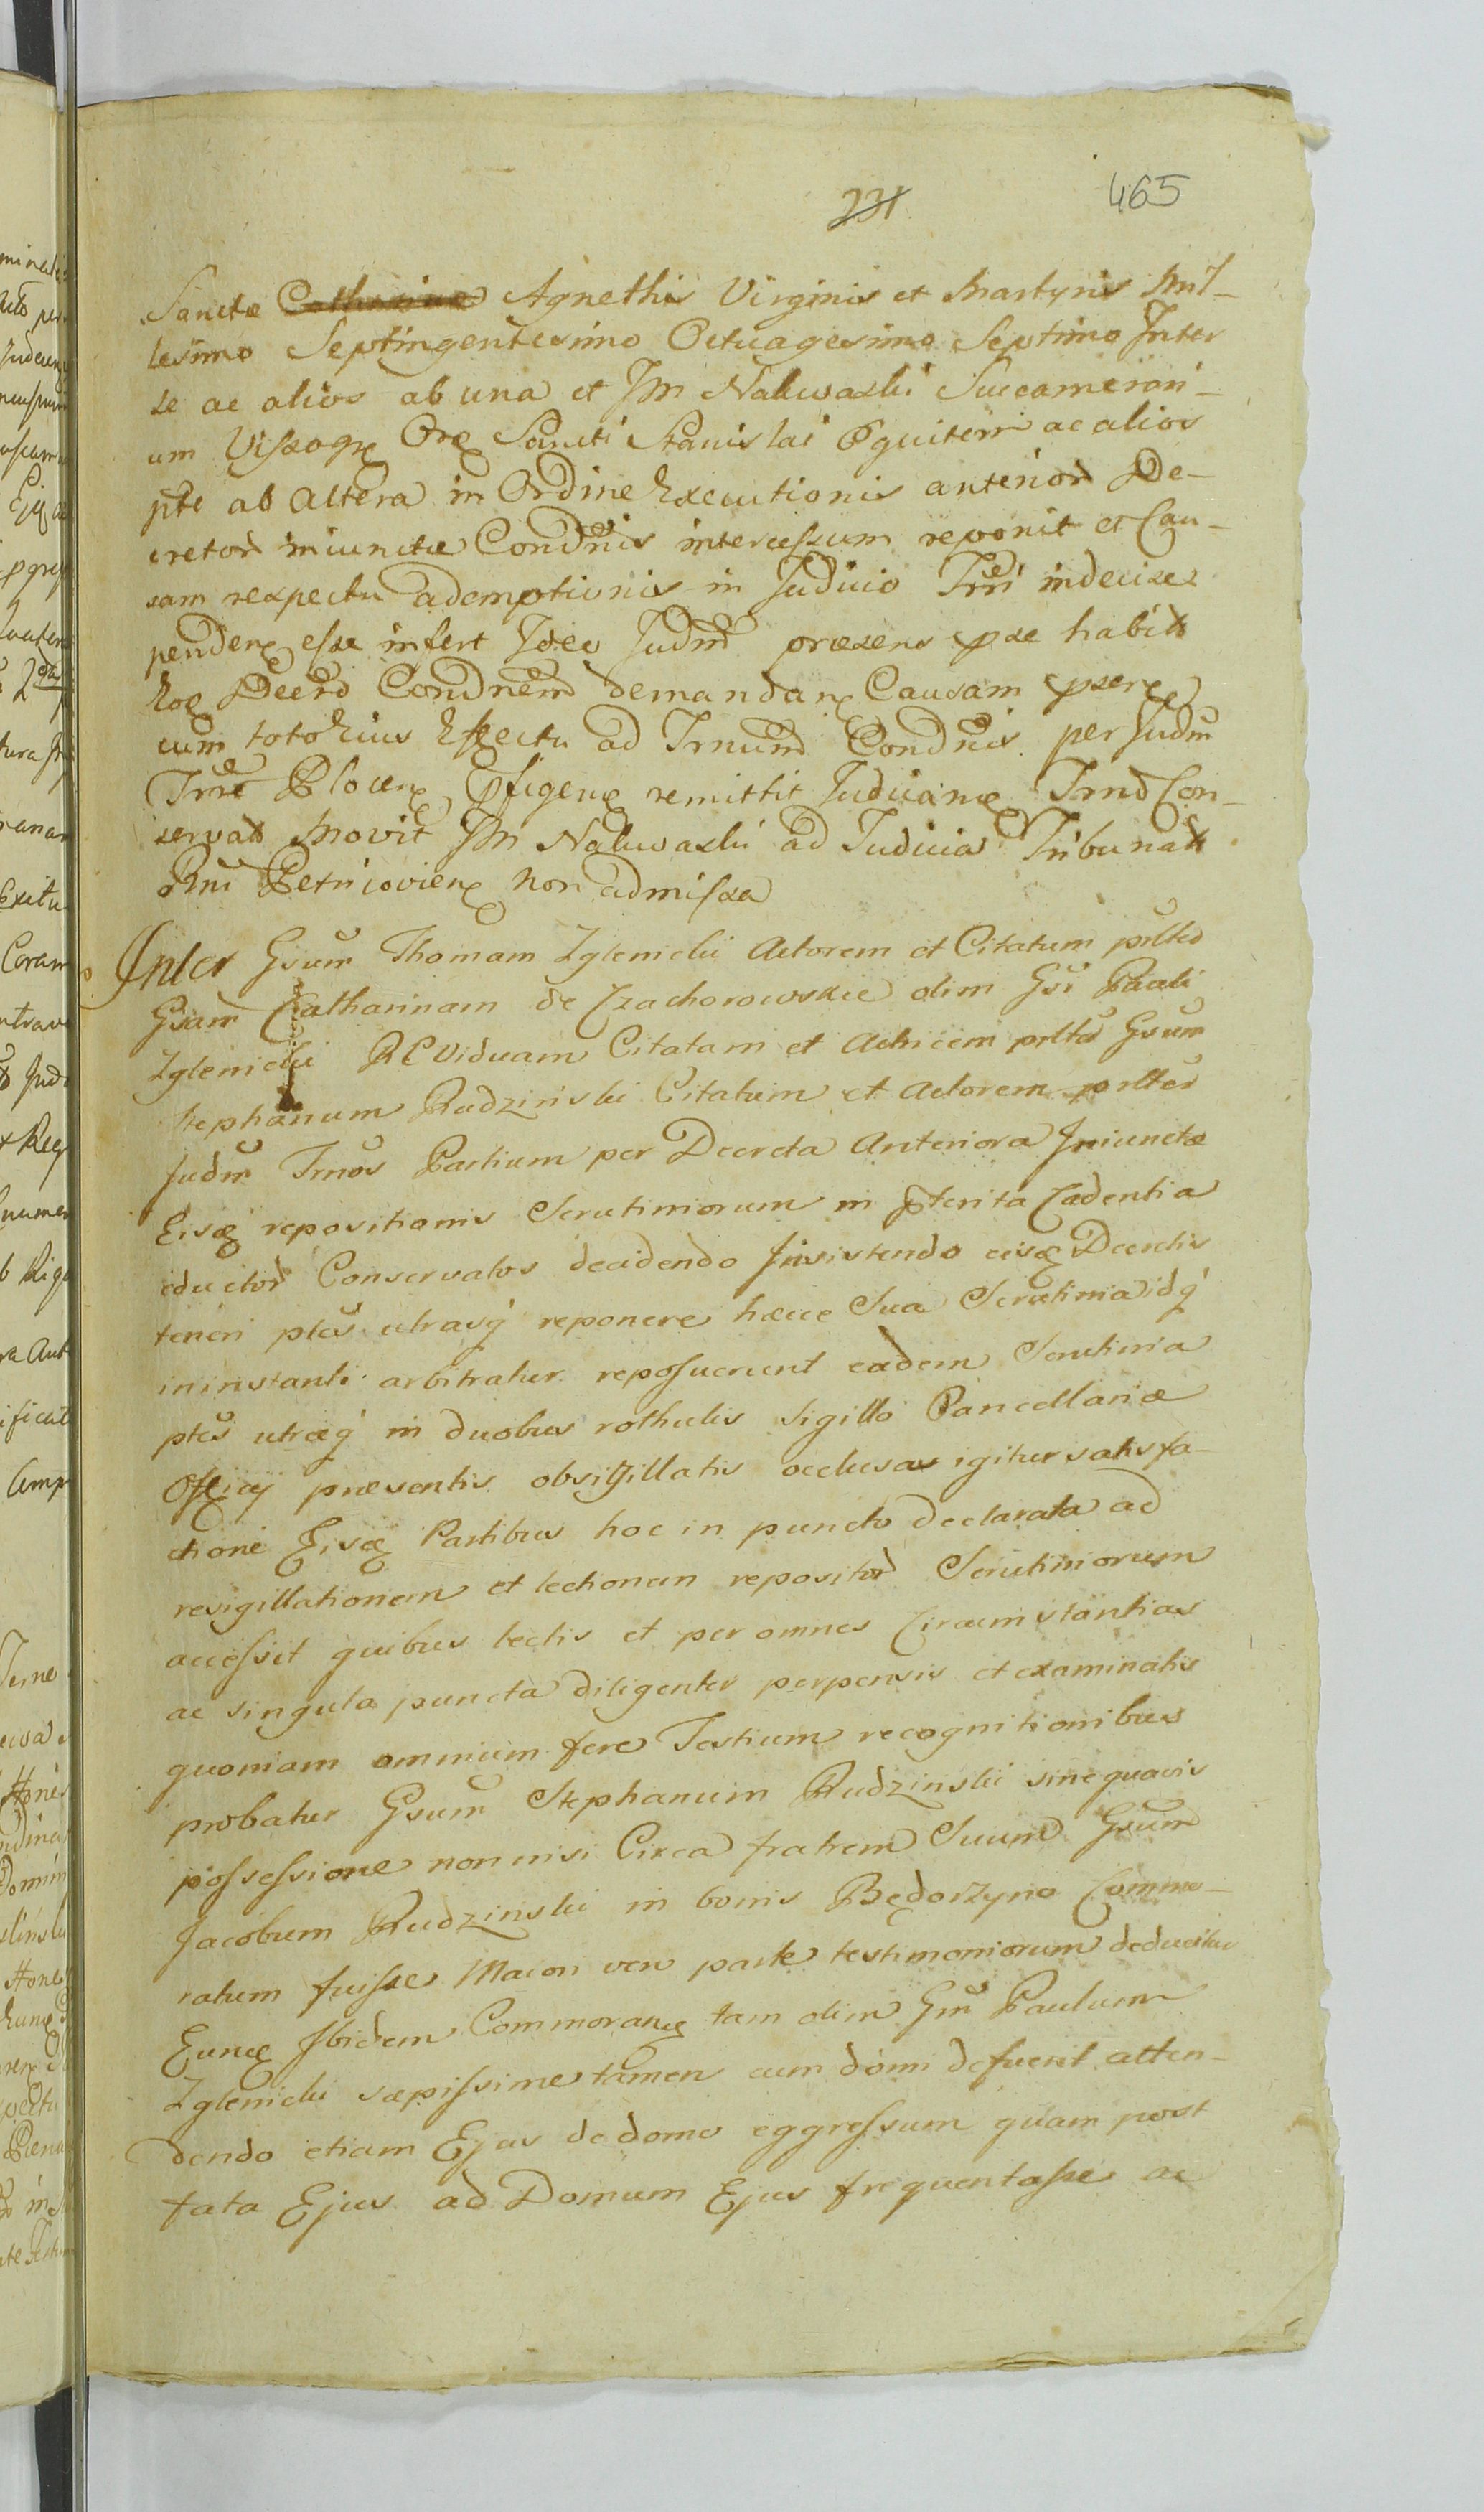 231 465
Sanctæ Catharinæ Agnethis Virginis et Martyris Mil-
lesimo Septingentesimo Octuagesimo Septimo Inter
se ac alios ab una et Nakwaski Succamerari-
um Vissogr Ord Sancti Stanislai Equitem ac alios
pte ab altera in Ordine Executionis anterior De-
cretor iniunctæ Condnis intercessum reponit et Cau-
sam respectu ademptionis in Judicio Trri indecise
penden esse infert Ideo Judm præsens habita
hoc Condnem demandan Causam
cum toto Eius Effectu ad Trnum Condnis per Judm
Trre Plocen Pfigen remittit Judician Trnd Con-
servat Movit Nakwaski ad Judicia Tribunat
Rni Petricovien non admissa
Inter Gsum Thomam Zglenicki Actorem et Citatum
Gsam Catharinam de Czachorowskie olim Gsi Pauli
Zglenicki RC Viduam Citatam et Actricem Gsum
Stephanum Rudzinski Citatum et Actorem
Judm Trnos Partium per Decreta Anteriora Iniunctæ
Eisq repositionis Scrutiniorum in pterita Cadentia
eductor Conservatos decidendo Insistendo eisq Decretis
teneri ptes utrasq reponere hæcce Sua Scrutinia idq
in instanti arbitratur reposuerunt eadem Scrutinia
ptes utræq in duobus rothulis Sigillo Cancellariæ
Officij præsentis obsigillatis occlusas igitur satisfa-
ctione Eisq Partibus hoc in puncto declarata ad
resigillationem et lectionem repositor Scrutiniorum
accessit quibus lectis et per omnes Circumstantias
ac singula puncta diligenter perpensis et examinatis
quoniam omnium fere Testium recognitionibus
probatur Gsum Stephanum Rudzinski sine quavis
possessione non nisi Circa fratrem Suum Gsum
Jacobum Rudzinski in bonis Będorzyno Commo-
ratum fuisse Maiori vero parte testimoniorum deducitur
Eunq Ibidem Commoranq tam olim Gsm Paulum
Zglenicki sæpissime tamen cum domi defuerit atten-
dendo etiam Ejus de domo eggressum quam post
fata Ejus ad Domum Ejus frequentasse ac